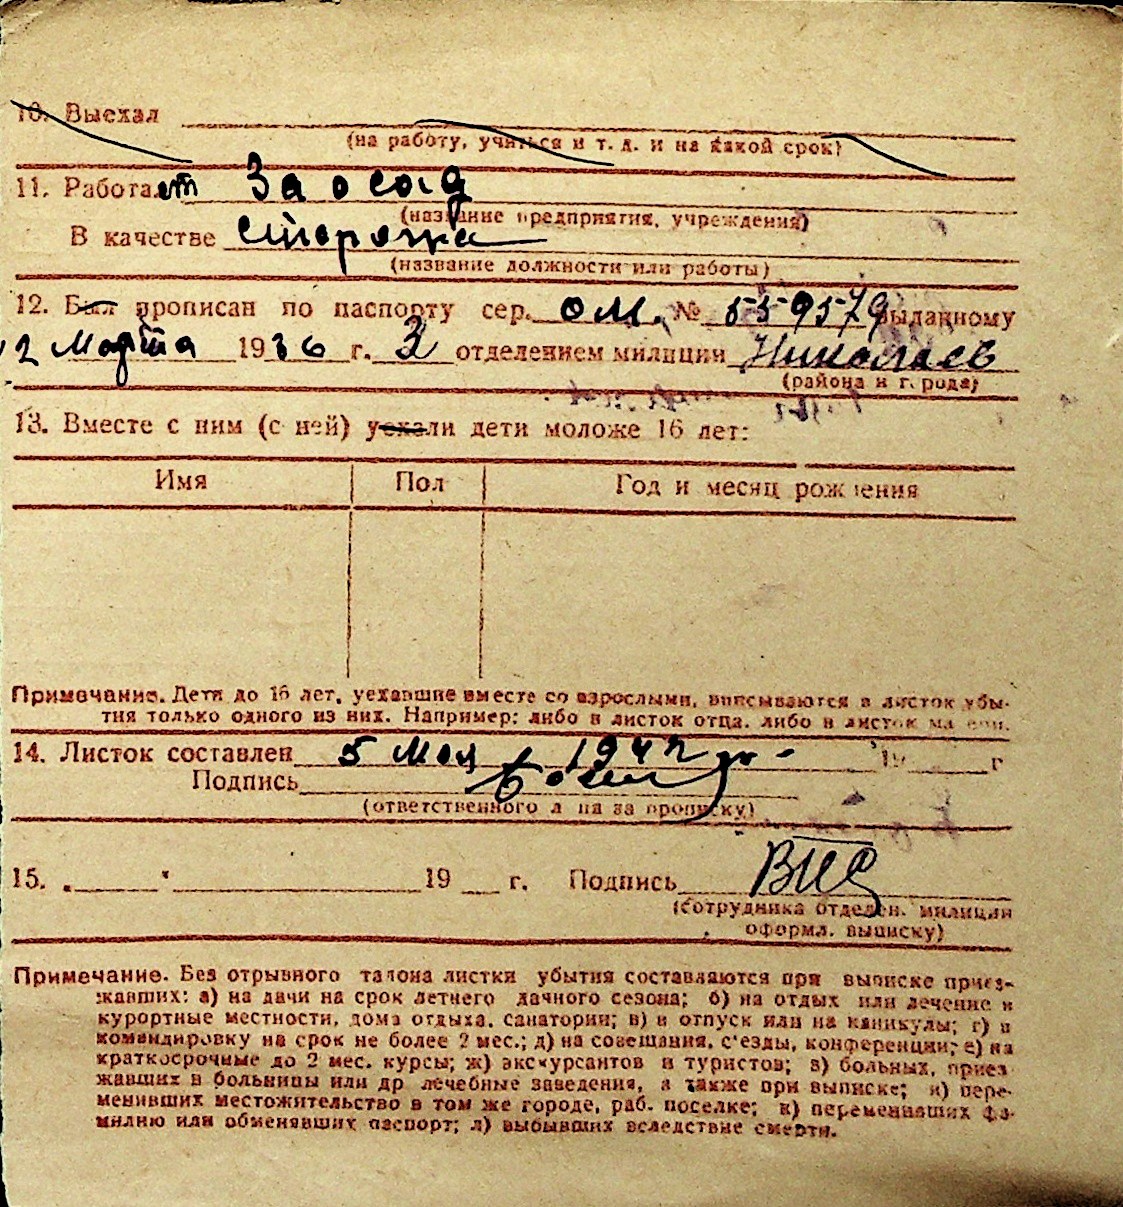 10. Выехал
(на работу, учиться и т. д. и на какой срок)
11. Работает За осыд
(название предприятия, учреждения)
В качестве сторожа
(название должности или работы)
12. Был прописан по паспорту сер. ОМ. № 559579 выданному
12 Марта 1936 г. 3 отделением милиции Николаев
(района и города)
13. Вместе с ним (с ней) уехали дети моложе 16 лет:
Имя Пол Год и месяц рождения
Примечание. Дети до 16 лет, уехавшие вместе со взрослыми, вписываются в листок убы-
тия только одного из них. Например: либо в листок отца, либо в листок матери.
14. Листок составлен 5 Мая 1942 г. 19 г
Подпись
(ответственного лица за прописку)
15. „ " 19 г. Подпись
(сотрудника отделен. милиции
оформл. выписку)
Примечание. Без отрывного талона листки убытия составляются при выписке приез-
жавших: а) на дачи на срок летнего дачного сезона; б) на отдых или лечение в
курортные местности, дома отдыха, санатории; в) в отпуск или на каникулы; г) в
командировку на срок не более 2 мес.; д) на совещания, с'езды, конференции; е) на
краткосрочные до 2 мес. курсы; ж) экскурсантов и туристов; з) больных, приез
жавших в больницы или др лечебные заведения, а также при выписке; и) пере-
менивших местожительство в том же городе, раб. поселке; к) переменивших фа-
милию или обменявших паспорт; л) выбывших вследствие смерти.